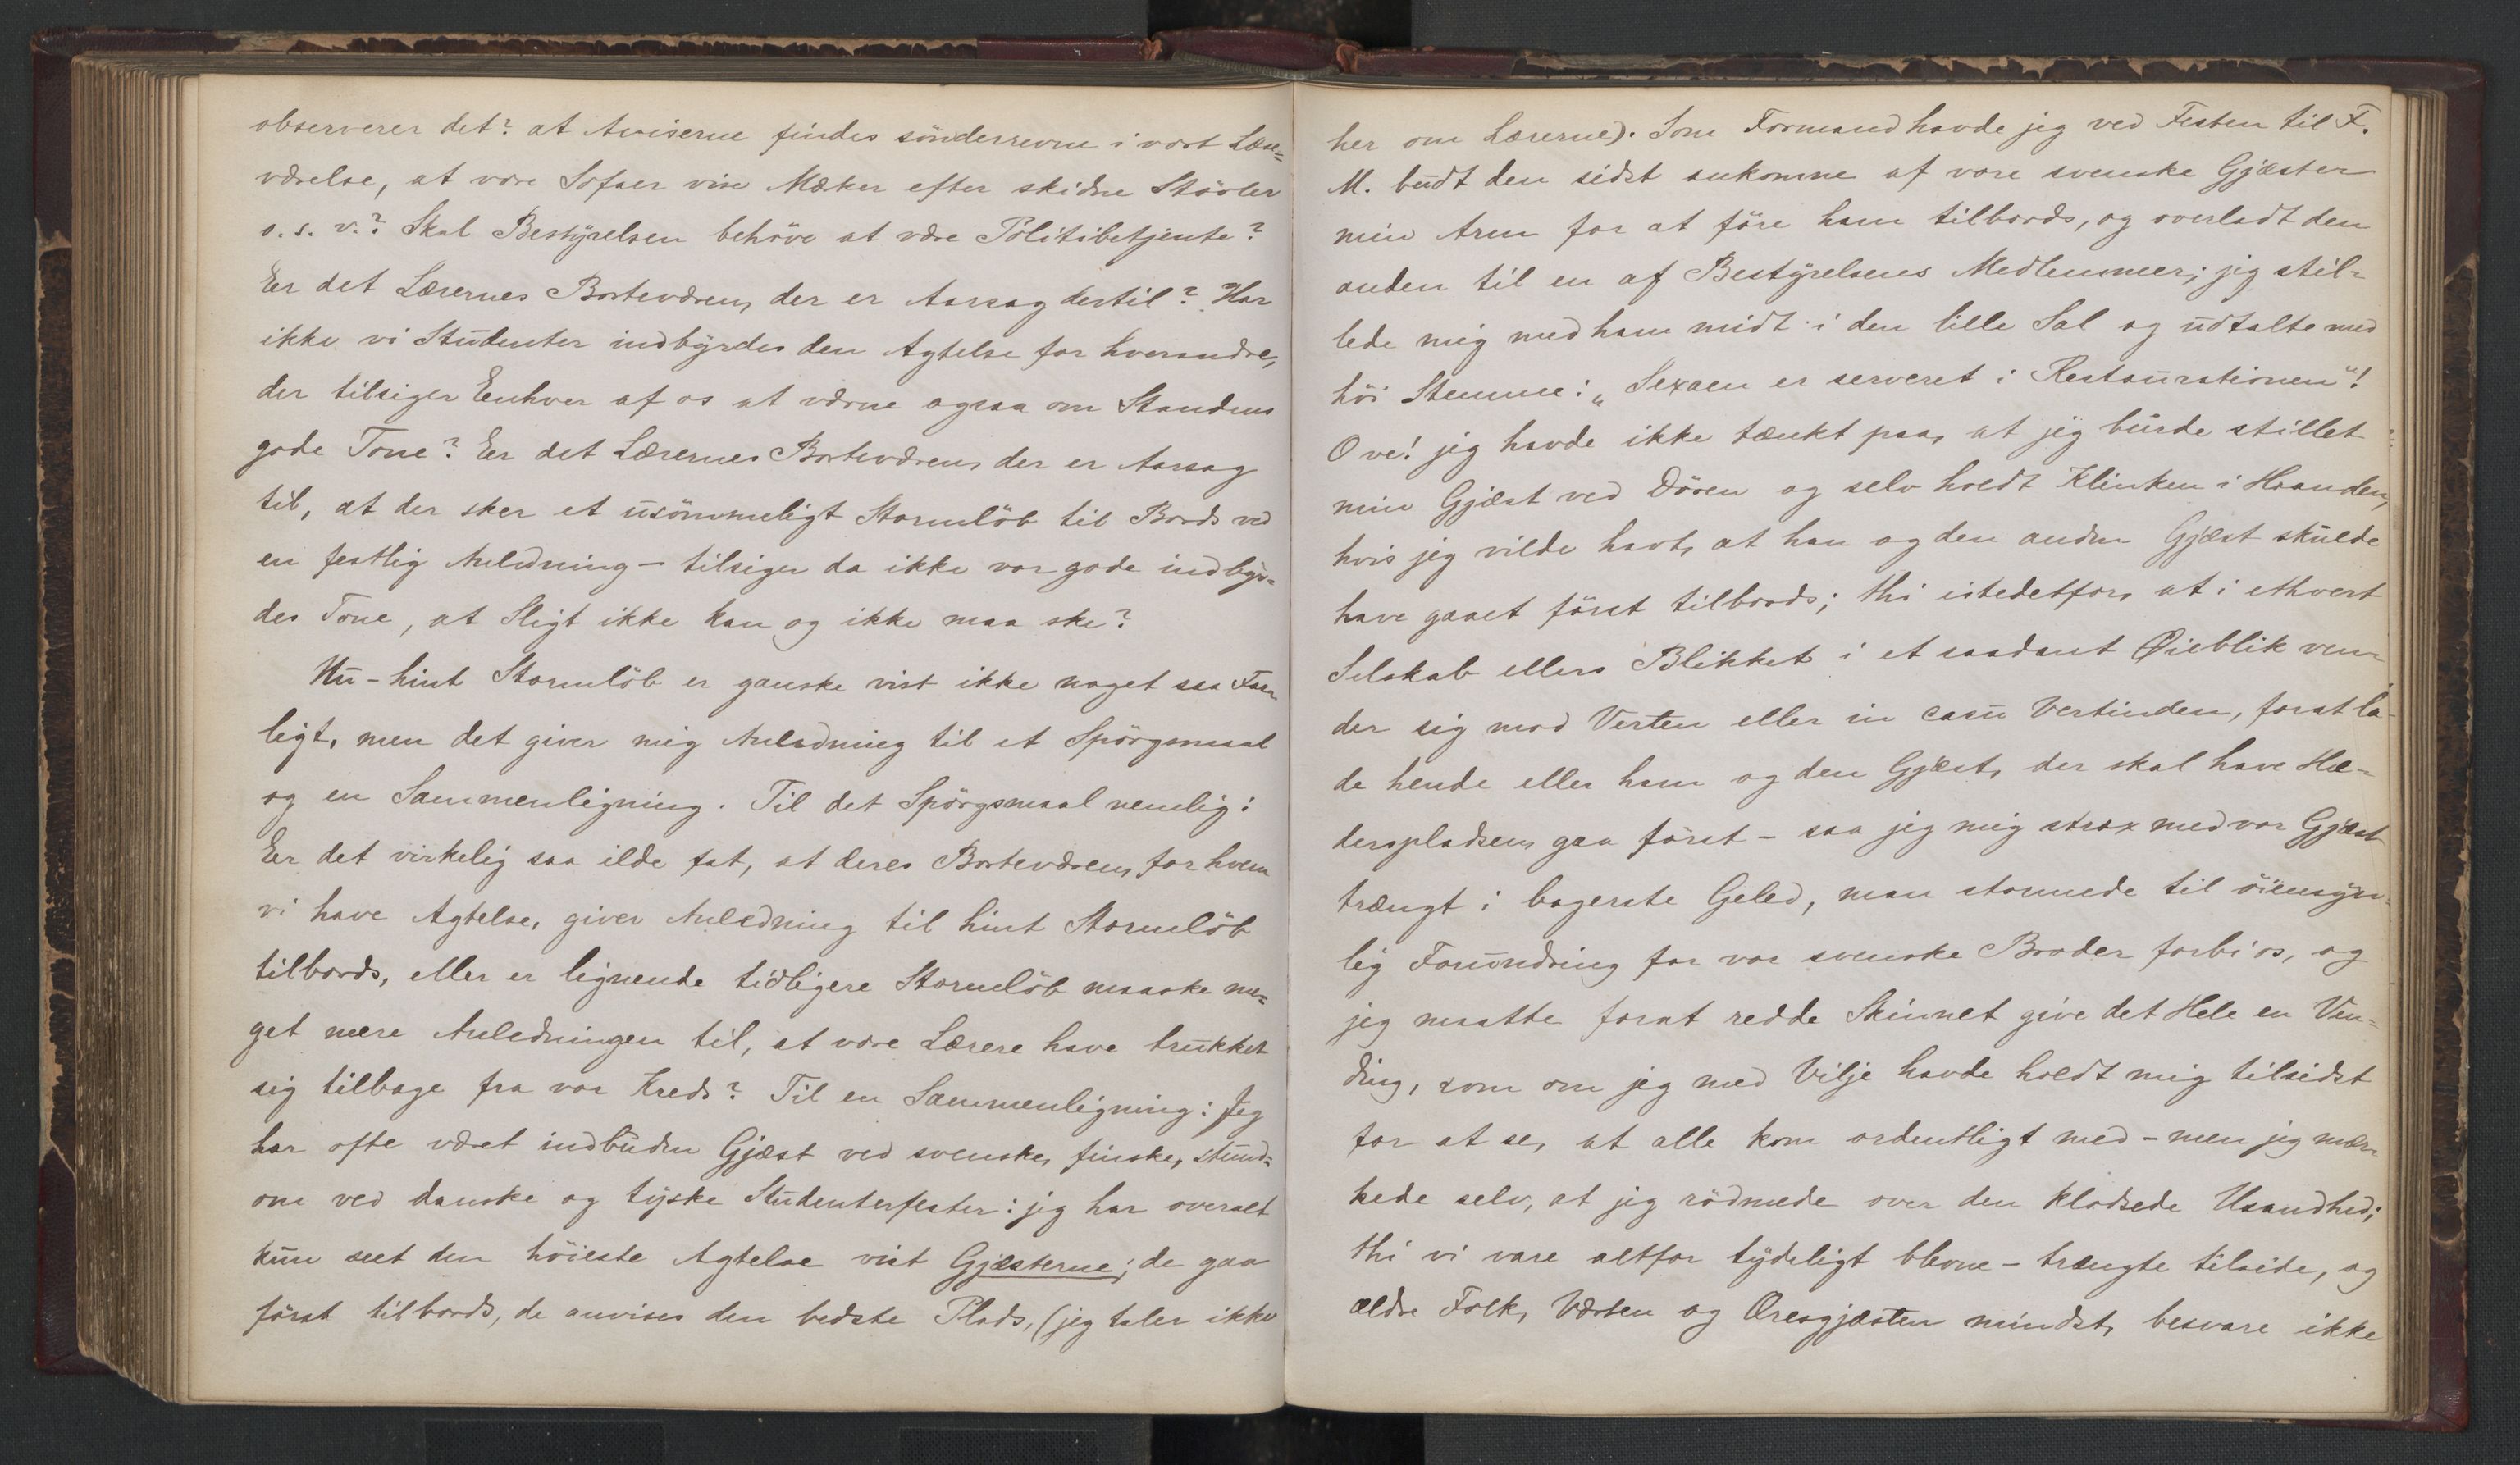 observerer det? at Aviserne findes sönderrevne i vort Læse=
værelse, at vore Sofaer vise Mærker efter skidne Stövler
o. s. v.? Skal Bestyrelsen behöve at være Politibetjente?
Er det Lærernes Borteværen, der er Aarsag dertil? Har
ikke vi Studenter indbyrdes den Agtelse for hverandre,
der tilsiger Enhver af os at værne ogsaa om Standens
gode Tone? Er det Lærernes Borteværen, der er Aarsag
til, at der sker et usömmeligt Stormlöb til Bords ved
en festlig Anledning – tilsiger da ikke vor gode indbyr=
des Tone, at Sligt ikke kan og ikke maa ske?
Nu – hint Stormlöb er ganske vist ikke noget saa Faar
ligt, men det giver mig Anledning til et Spörgsmaal
og en Sammenligning. Til det Spörgsmaal nemlig:
Er det virkelig saa ilde fat, at deres Borteværen, for hvem
vi have Agtelse, giver Anledning til hint Stormlöb
tilbords, eller er lignende tidligere Stormlöb maaske me=
get mere Anledningen til, at vore Lærere have trukket
sig tilbage fra vor Kreds? Til en Sammenligning: Jeg
har ofte været indbuden Gjæst ved svenske, finske, stund=
om ved danske og tyske Studenterfester: jeg har overalt
kun seet den höieste Agtelse vist Gjæsterne; de gaa
först tilbords, de anvises den bedste Plads, (jeg taler ikke
her om Lærerne). Som Formand havde jeg ved Festen til F.
M. budt den sidst ankomne af vore svenske Gjæster
min Arm for at före ham tilbords, og overladt den
anden til en af Bestyrelsens Medlemmer; jeg stil=
lede mig med ham midt i den lille Sal og udtalte med
höi Stemme: „Sexaen er serveret i Restaurationen"!
O ve! jeg havde ikke tænkt paa, at jeg burde stillet
min Gjæst ved Dören og selv holdt Klinken i Haanden,
hvis jeg vilde havt, at han og den anden Gjæst skulde
have gaaet först tilbords; thi istedetfor, at i ethvert
Selskab ellers Blikket i et saadant Øieblik ven=
der sig mod Verten eller in casu Vertinden, forat la=
de hende eller ham og den Gjæst, der skal have Hæ=
derspladsen, gaa först – saa jeg mig strax med vor Gjæst
trængt i bagerste Geled, man stormede til öiensyn=
lig Forundring for vor svenske Broder forbi os, og
jeg maatte forat redde Skinnet give det Hele en Ven=
ding, som om jeg med Vilje havde holdt mig tilsidst
for at se, at alle kom ordentligt med – men jeg mær=
kede selv, at jeg rödmede over den klodsede Usandhed;
thi vi vare altfor tydeligt blevne – trængte tilside, og
ældre Folk, Værten og Æresgjæsten mindst, besvare ikke